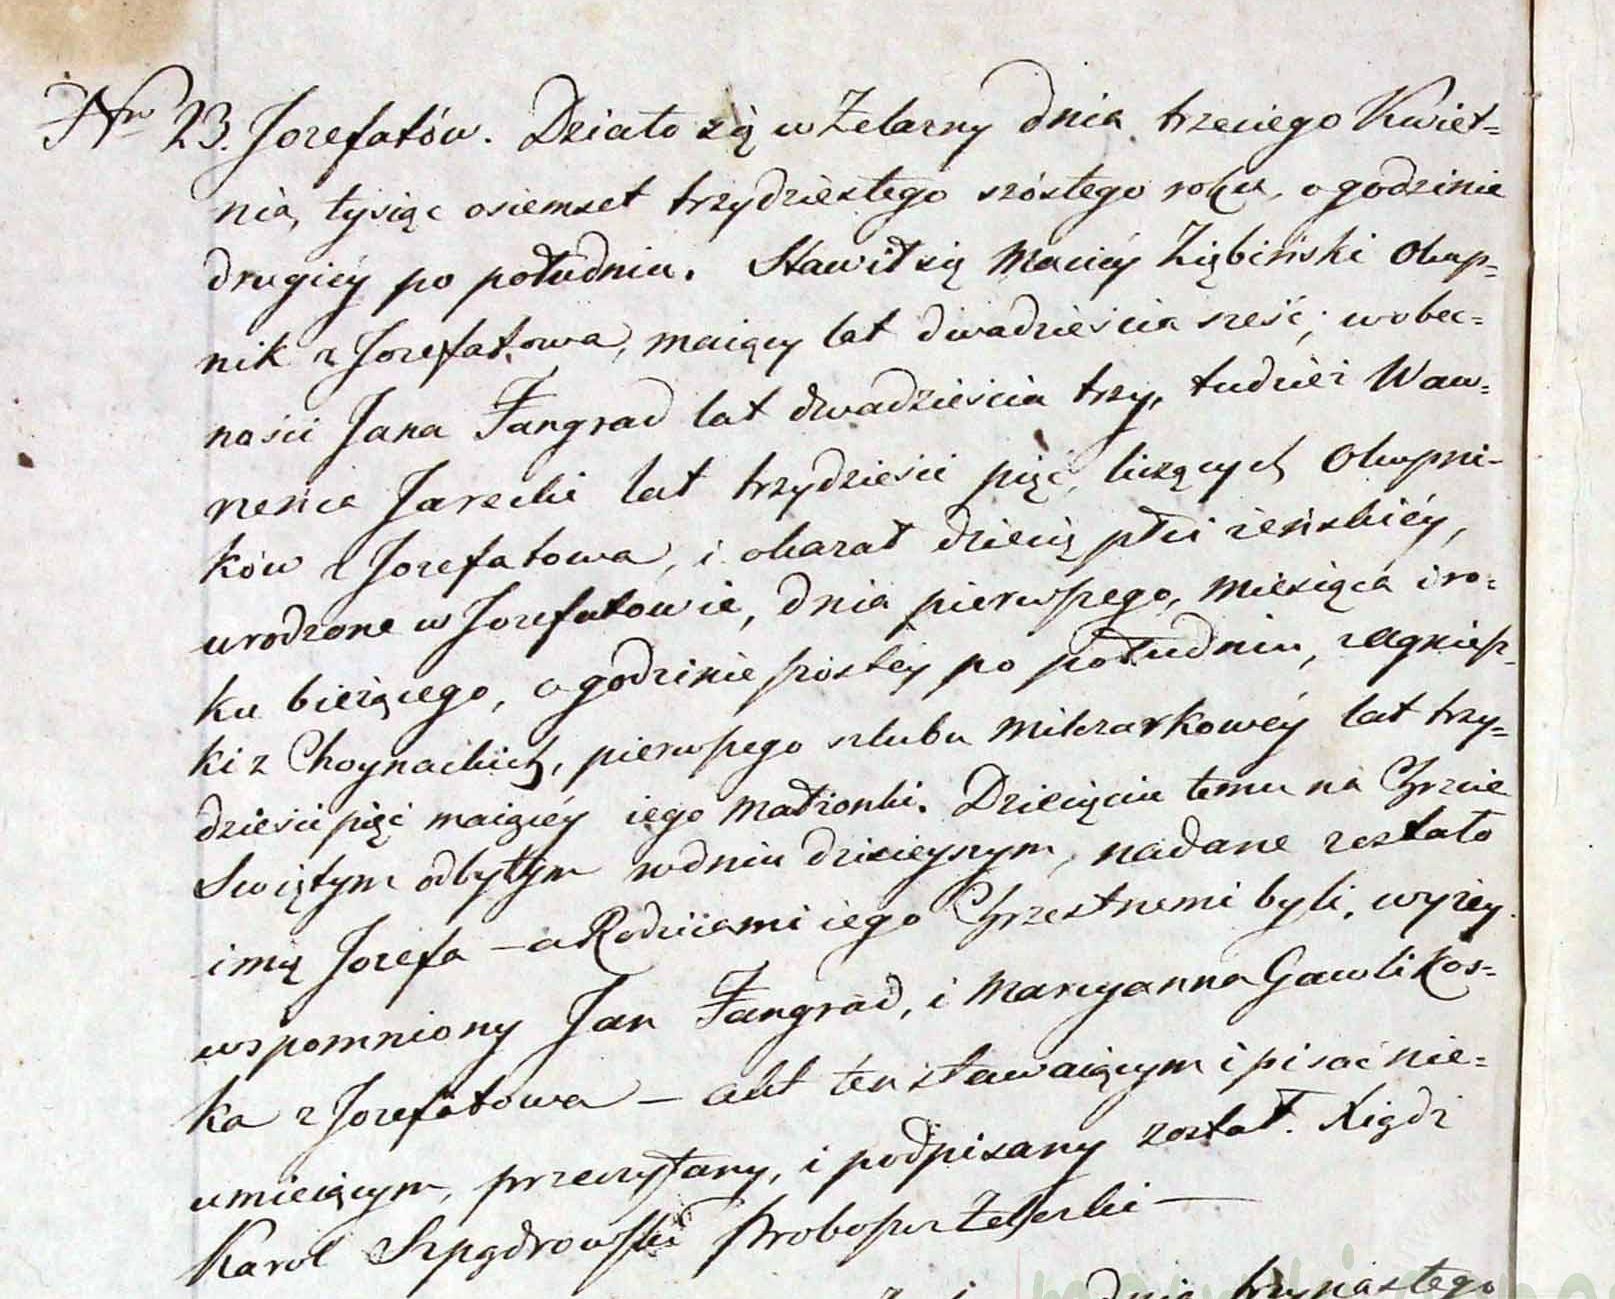 Nro 23. Jozefatów. Działo się w Zelazny dnia trzeciego Kwiet=
nia, tysiąc osiemset trzydziestego szóstego roku, o godzinie
drugiéy po południu. Stawił się Maciéy Ziębiński Okup=
nik z Jozefatowa, maiący lat dwadzieścia sześć; w obec=
ności Jana Fangrad lat dwadzieścia trzy, tudzież Waw=
rzeńca Jarecki lat trzydzieści pięć, liczących Okupni=
ków z Jozefatowa, i okazał dziecię płci żeńskiéy,
urodzone w Jozefatowie, dnia pierwszego, miesiąca i ro=
ku bieżącego, o godzinie szóstéy po południu, z Agniesz=
ki z Choynackich, pierwszego szlubu Milczarkowéy lat trzy=
dzieści pięć maiącéy iego Małżonki. Dziecięciu temu na Chrzcie
Swiętym odbytym w dniu dzisieyszym, nadane zostało
imię Jozefa – a Rodzicami iego Chrzestnemi byli, wyżey
wspomniony Jan Fangrad, i Maryanna Gawlikos=
ka z Jozefatowa – akt ten stawaiącym i pisać nie=
umieiącym, przeczytany, i podpisany został. Xiądz
Karol Szpądrowski Proboszcz
dnia trzynastego